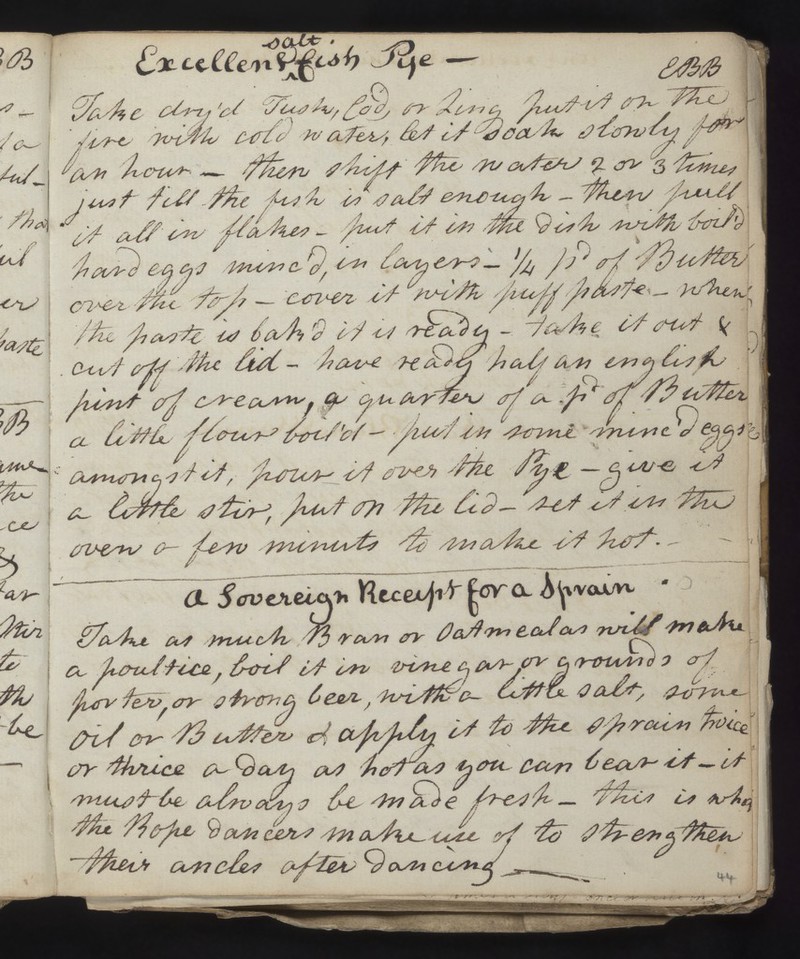 salt
Excellent ^ fish Pye —
EBB
Take dry'd Tusk, Cod, or Ling put it on the
fire with cold water, let it soak slowly for
an hour — then shift the water 2 or 3 times
just till the fish is salt enough — then pull
it all in flakes — put it in the dish with boil'd
hard eggs minc'd, in layers — 1/4 pd of Butter
over the top — cover it with puff paste — when
the paste is bak'd it is ready — take it out &
cut off the lid — have ready half an english
pint of cream, a quarter of a pd of Butter
a little flour boil'd — put in some minc'd eggs
amongst it, pour it over the Pye — give it
a little stir, put on the lid — set it in the
oven a few minuts to make it hot. —
a Sovereign Receipt for a Sprain
Take as much Bran or Oatmeal as will make
a poultice, boil it in vinegar, or grounds of
porter, or strong beer, with a little salt, some
oil or Butter & apply it to the sprain twice
or thrice a day as hot as you can bear it — it
must be always be made fresh — this is what
the Rope dancers make use of to strengthen
their ancles after dancing —
44
BB
paste
BB
the
ce
be